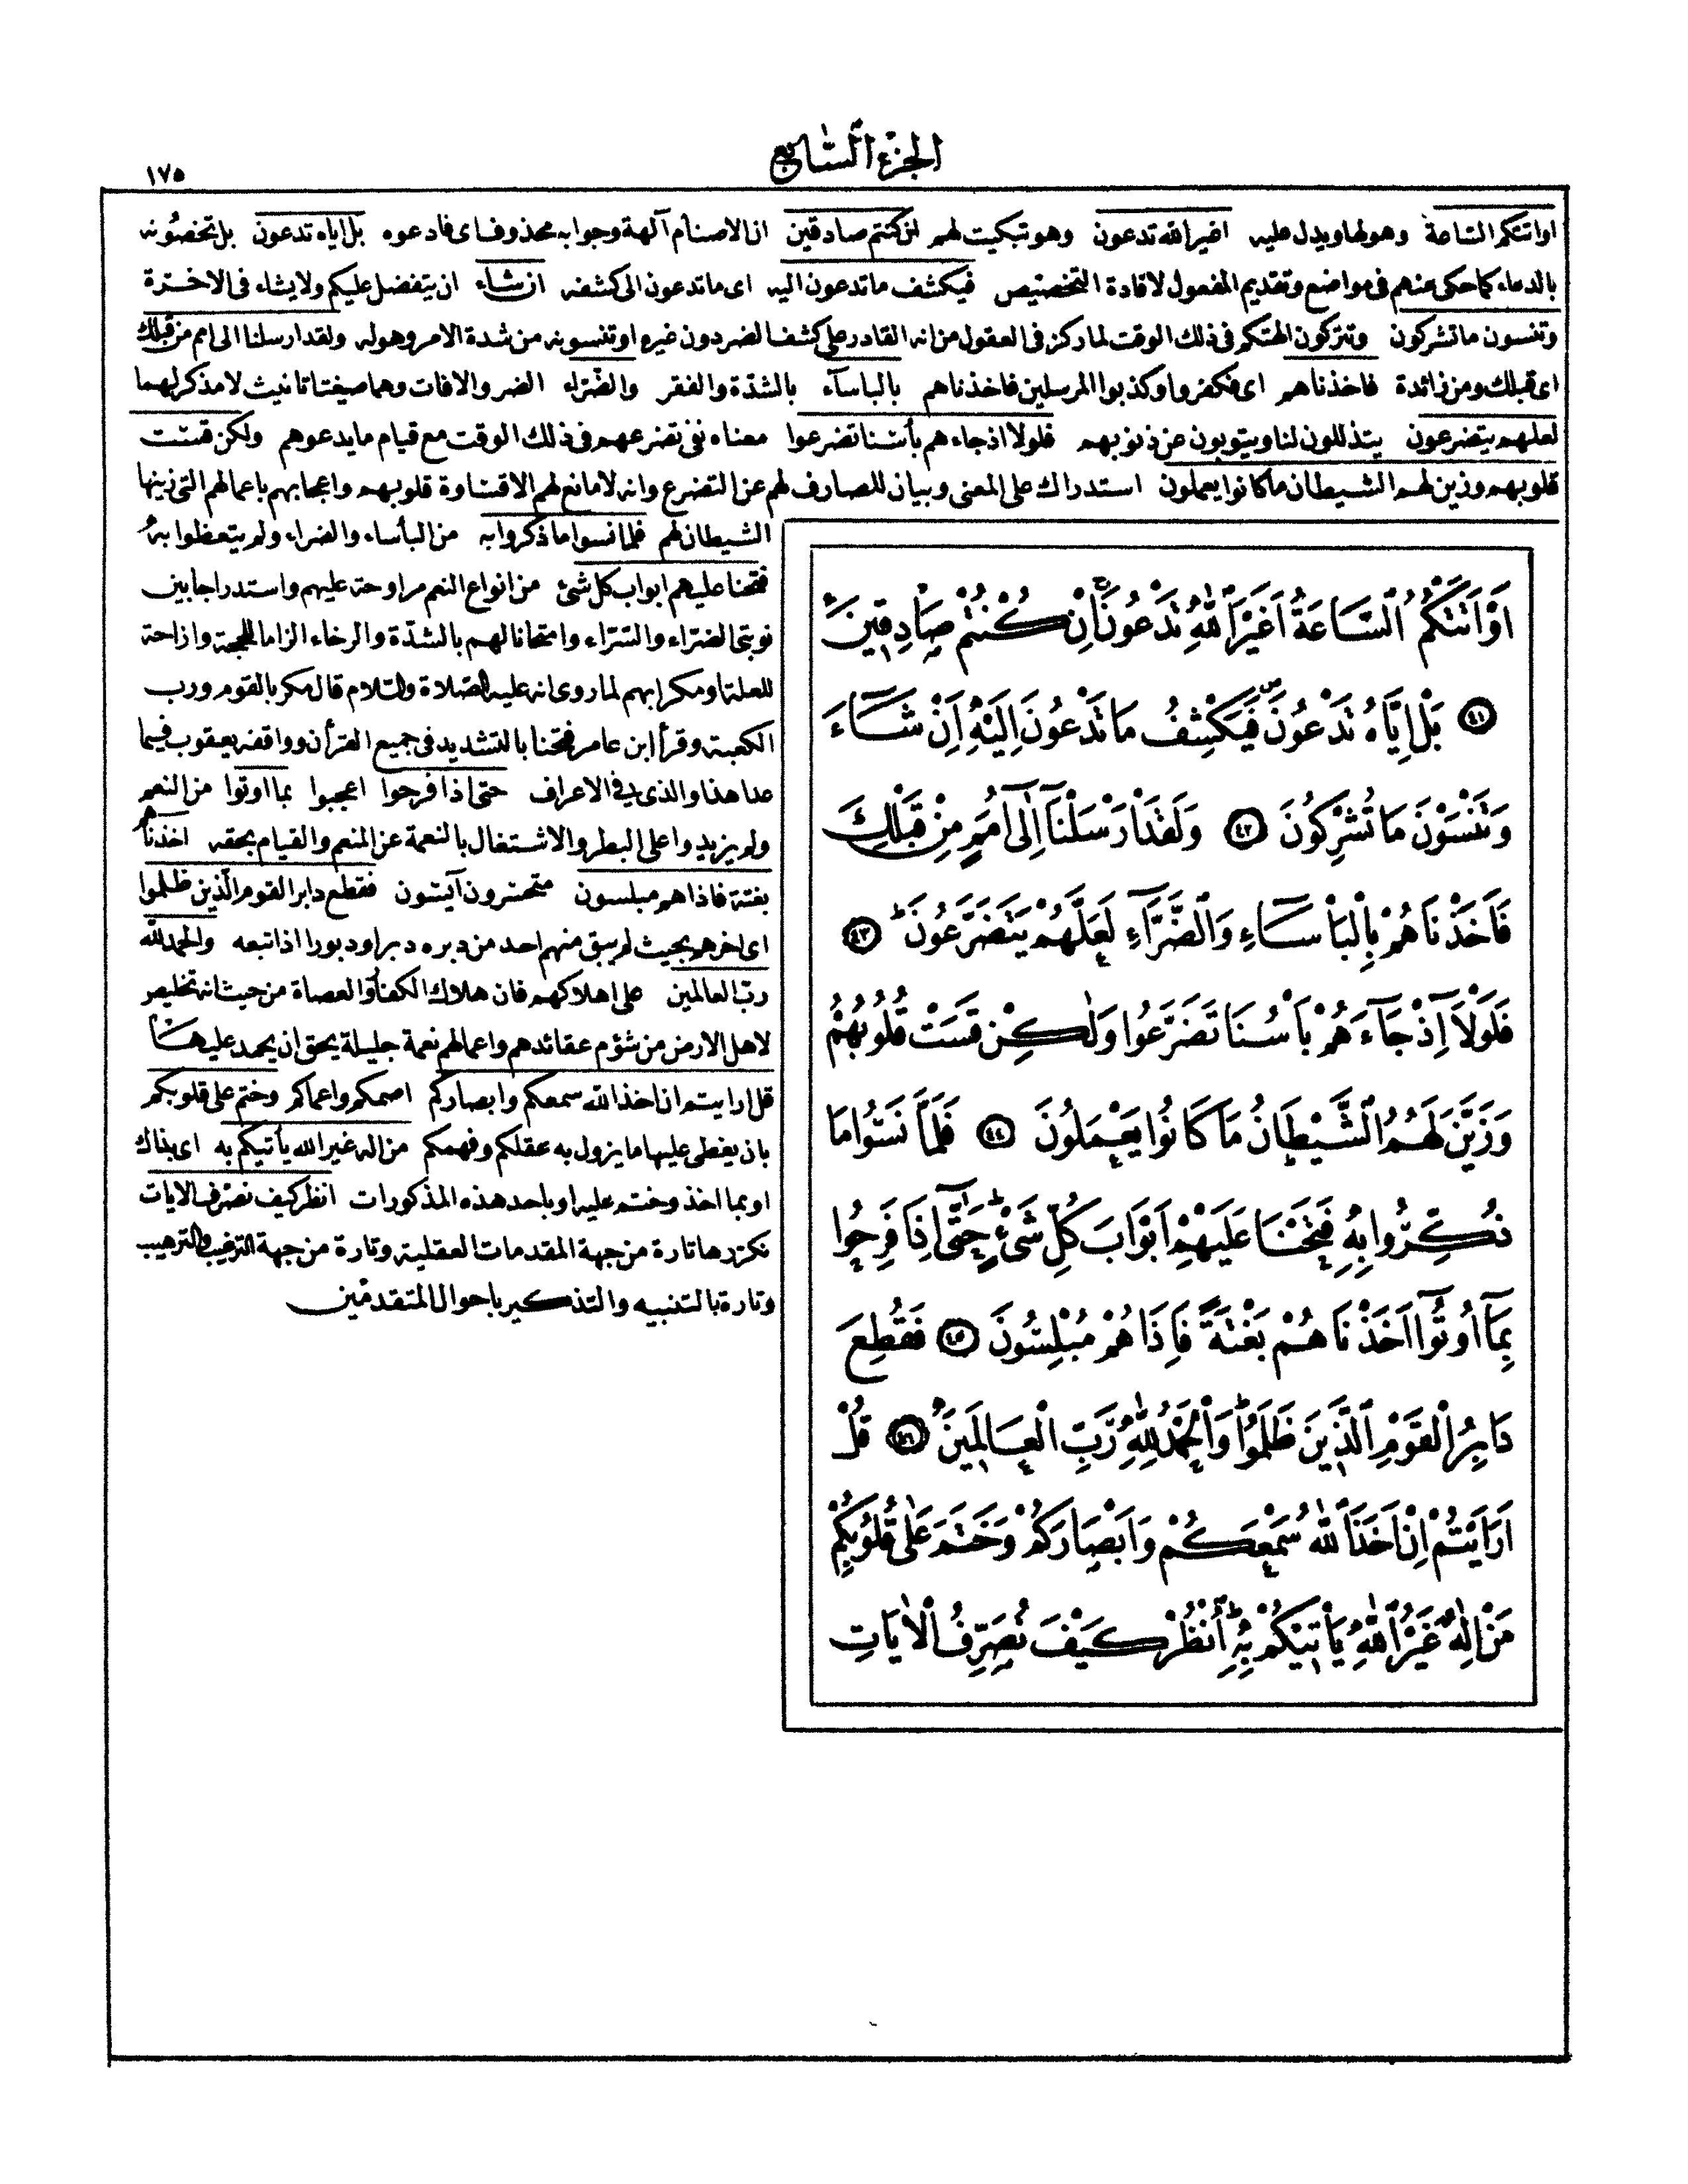 الجزء السابع
١٧٥
او اتتكم الساعة وهولها ويدل عليه اغير الله تدعون وهو تبكيت لهم ان كنتم صادقين ان الاصنام آلهة وجوابه محذوف اى فادعوه بل اياه تدعون بل تخصونه
بالدعاء كما حكى عنهم فى مواضع وتقديم المفعول لافادة التخصيص فيكشف ما تدعون اليه اى ما تدعون الى كشفه ان شاء ان يتفضل عليكم ولا يشاء فى الاخرة
وتنسون ما تشركون وتتركون آلهتكم فى ذلك الوقت لما ركز فى العقول من انه القادر على كشف الضر دون غيره او تنسونه من شدة الامر وهوله ولقد ارسلنا الى امم من قبلك
اى قبلك ومن زائدة فاخذناهم اى فكفروا وكذبوا المرسلين فاخذناهم بالباسآء بالشدّة والفقر والضّراء الضر والافات وهما صيغتا تانيث لا مذكر لهما
لعلهم يتضرعون يتذللون لنا ويتوبون عن ذنوبهم فلولا اذ جاءهم بأسنا تضرعوا معناه نفى تضرعهم فى ذلك الوقت مع قيام ما يدعوهم ولكن قست
قلوبهم وزين لهم الشيطان ما كانوا يعملون استدراك على المعنى وبيان للصارف لهم عن التضرع وانه لا مانع لهم الا قساوة قلوبهم واعجابهم باعمالهم التى زينها
الشيطان لهم فلما نسوا ما ذكروا به من البأساء والضراء ولم يتعظوا به
فتحنا عليهم ابواب كل شئ من انواع النعم مراوحة عليهم واستدراجا بين
نوبتى الضراء والسّراء وامتحانا لهم بالشدّة والرخاء الزاما للحجة وازاحة
للعلة او مكرا بهم لما روى انه عليه الصّلاة والسّلام قال مكر بالقوم ورب
الكعبة وقرأ ابن عامر فتحنا بالتشديد فى جميع القرأن ووافقه يعقوب فيما
عدا هذا والذى فى الاعراف حتى اذا فرحوا اعجبوا بما اوتوا من النعم
ولم يزيدوا على البطر والاشتغال بالنعمة عن المنعم والقيام بحقه اخذناهم
بغتة فاذا هم مبلسون متحسرون آيسون فقطع دابر القوم الّذين ظلموا
اى اخرهم بحيث لم يبق منهم احد من دبره دبرا ودبورا اذا تبعه والحمد لله
ربّ العالمين على اهلاكهم فان هلاك الكفار والعصاة من حيث انه تخليص
لاهل الارض من شؤم عقائدهم واعمالهم نعمة جليلة يحق ان يحمد عليها
قل ارايتم ان اخذ الله سمعكم وابصاركم اصمكم واعماكم وختم على قلوبكم
بان يغطى عليها ما يزول به عقلكم وفهمكم من اله غير الله يأتيكم به اى بذاك
او بما اخذ وختم عليه او باحد هذه المذكورات انظر كيف نصرّف الايات
نكررها تارة من جهة المقدمات العقلية وتارة من جهة الترغيب والترهيب
وتارة بالتنبيه والتذكير باحوال المتقدمين
اَوْ اَتَتْكُمُ السَّاعَةُ اَغَيْرَ اللّٰهِ تَدْعُونَ اِنْ كُنْتُمْ صَادِقِينَ
٤١ بَلْ اِيَّاهُ تَدْعُونَ فَيَكْشِفُ مَا تَدْعُونَ اِلَيْهِ اِنْ شَاءَ
وَتَنْسَوْنَ مَا تُشْرِكُونَ ٤٢ وَلَقَدْ اَرْسَلْنَا اِلٰى اُمَمٍ مِنْ قَبْلِكَ
فَاَخَذْنَاهُمْ بِالْبَاْسَاءِ وَالضَّرَّاءِ لَعَلَّهُمْ يَتَضَرَّعُونَ ٤٣
فَلَوْلَا اِذْ جَاءَهُمْ بَاْسُنَا تَضَرَّعُوا وَلٰكِنْ قَسَتْ قُلُوبُهُمْ
وَزَيَّنَ لَهُمُ الشَّيْطَانُ مَا كَانُوا يَعْمَلُونَ ٤٤ فَلَمَّا نَسُوا مَا
ذُكِّرُوا بِهِ فَتَحْنَا عَلَيْهِمْ اَبْوَابَ كُلِّ شَىْءٍ حَتّٰى اِذَا فَرِحُوا
بِمَا اُوتُوا اَخَذْنَاهُمْ بَغْتَةً فَاِذَا هُمْ مُبْلِسُونَ ٤٥ فَقُطِعَ
دَابِرُ الْقَوْمِ الَّذِينَ ظَلَمُوا وَالْحَمْدُ لِلّٰهِ رَبِّ الْعَالَمِينَ ٤٦ قُلْ
اَرَاَيْتُمْ اِنْ اَخَذَ اللّٰهُ سَمْعَكُمْ وَاَبْصَارَكُمْ وَخَتَمَ عَلٰى قُلُوبِكُمْ
مَنْ اِلٰهٌ غَيْرُ اللّٰهِ يَاْتِيكُمْ بِهِ اُنْظُرْ كَيْفَ نُصَرِّفُ الْاٰيَاتِ